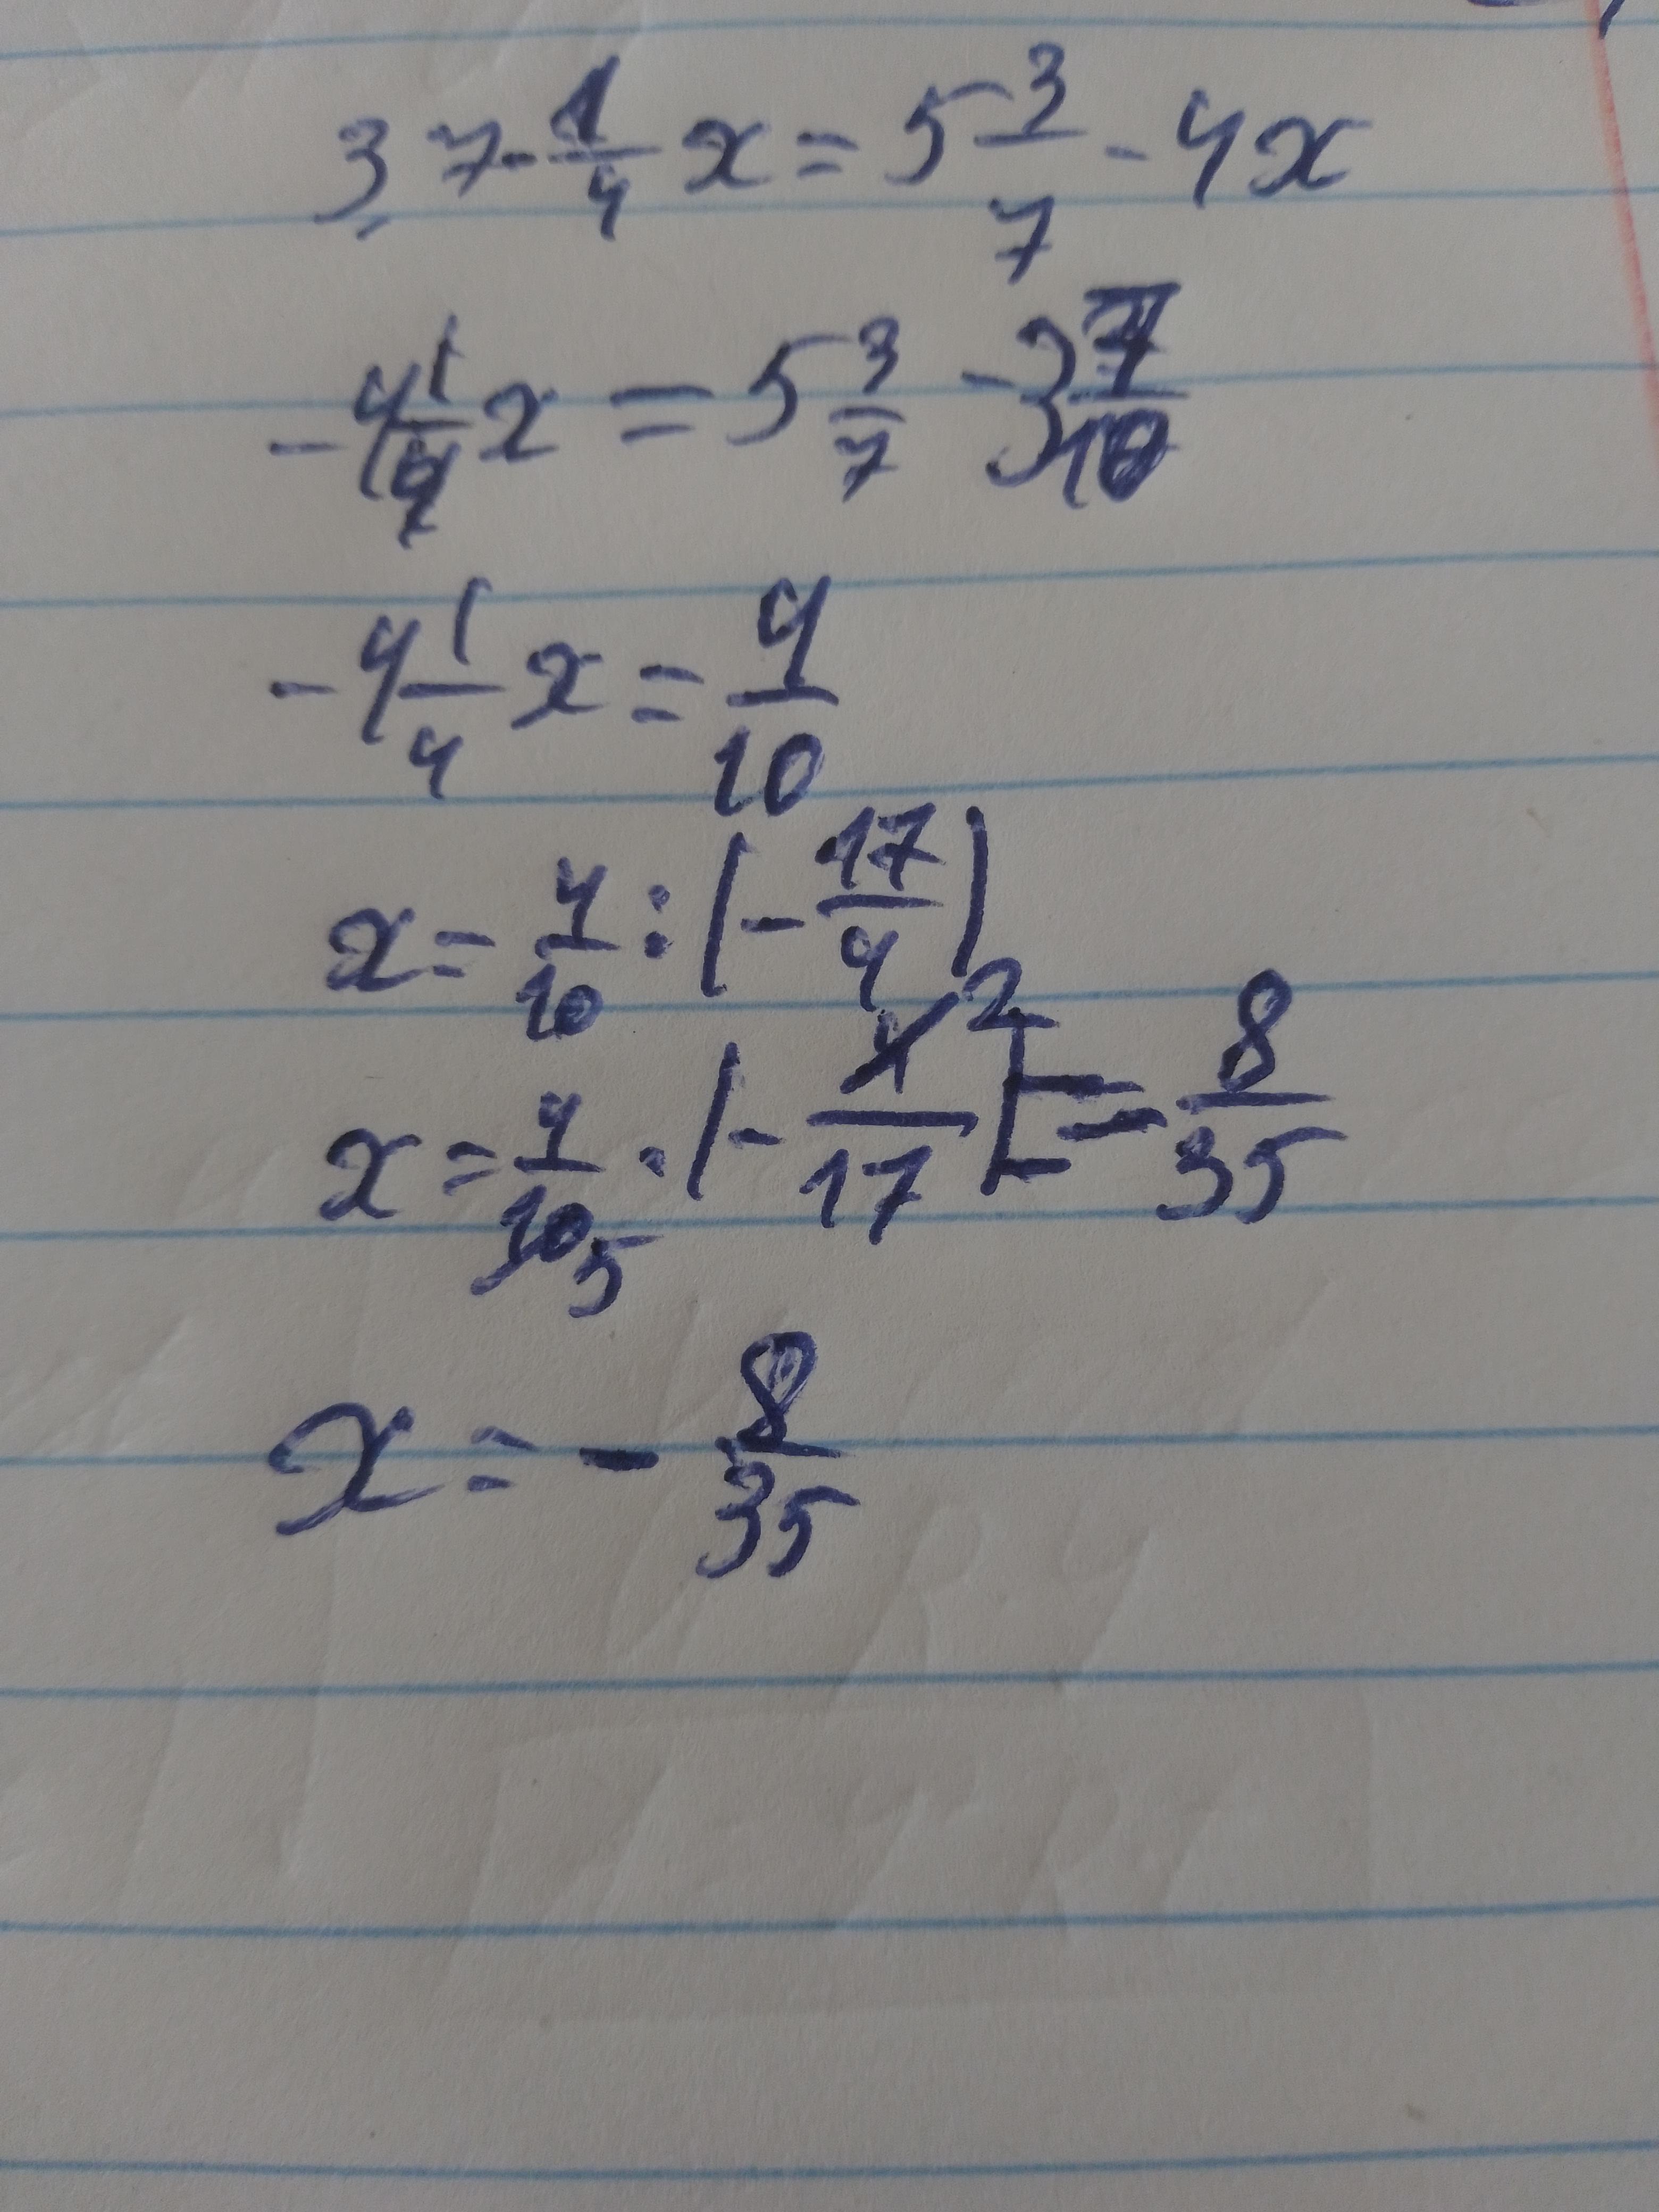 3,7-1/4 x = 5 3/7 - 4x
-4 1/4 x = 5 3/7 - 3 7/10
-4 1/4 x = 4/10
x = 4/10 : (-17/4)
x = 4/10 5 · (-4/17) 2 = -8/35
x = -8/35